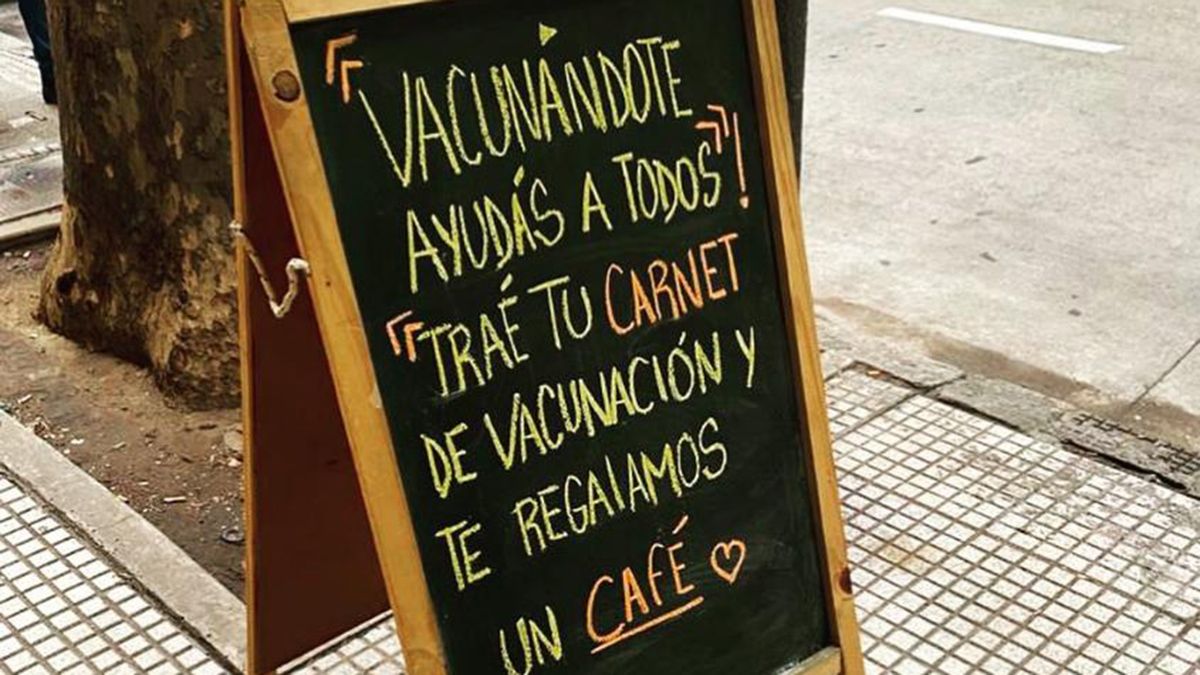 "VACUNÁNDOTE
AYUDÁS A TODOS"!
"TRAÉ TU CARNET
DE VACUNACIÓN Y
TE REGALAMOS
UN CAFÉ ♡